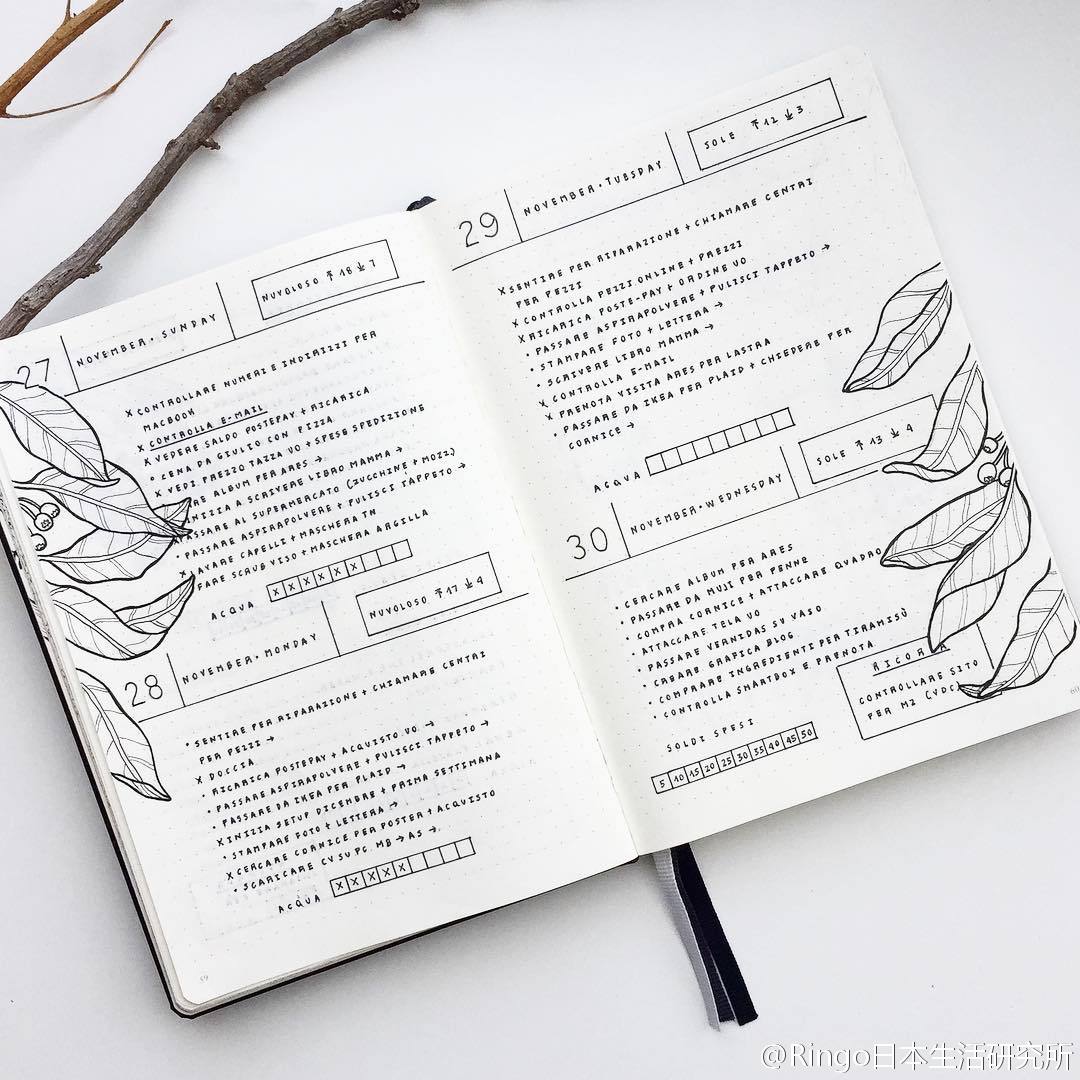 27
NOVEMBER • SUNDAY
NUVOLOSO ↑18 ↓7
X CONTROLLARE NUMERI E INDIRIZZI PER
MACBOOK
X CONTROLLA E-MAIL
X VEDERE SALDO POSTEPAY + RICARICA
• CENA DA GIULIO CON PIZZA
X VEDI PREZZO TAZZA VO + SPESE SPEDIZIONE
ALBUM PER ARES →
A SCRIVERE LIBRO MAMMA →
PASSARE AL SUPERMERCATO (ZUCCHINE + MOZZ)
PASSARE ASPIRAPOLVERE + PULISCI TAPPETO →
X LAVARE CAPELLI + MASCHERA TN
FARE SCRUB VISO + MASCHERA ARGILLA
ACQUA X X X X X
28
NOVEMBER • MONDAY
NUVOLOSO ↑17 ↓4
• SENTIRE PER RIPARAZIONE + CHIAMARE CENTRI
PER PEZZI →
X DOCCIA
• RICARICA POSTEPAY + ACQUISTO VO →
• PASSARE ASPIRAPOLVERE + PULISCI TAPPETO →
• PASSARE DA IKEA PER PLAID →
X INIZIA SETUP DICEMBRE + PRIMA SETTIMANA
• STAMPARE FOTO + LETTERA →
X CERCARE CORNICE PER POSTER + ACQUISTO
• SCARICARE CV SU PC MB → AS →
ACQUA X X X X X
59
29
NOVEMBER • TUESDAY
SOLE ↑12 ↓3
X SENTIRE PER RIPARAZIONE + CHIAMARE CENTRI
PER PEZZI
X CONTROLLA PEZZI ONLINE + PREZZI
X RICARICA POSTE-PAY + ORDINE VO
• PASSARE ASPIRAPOLVERE + PULISCI TAPPETO →
• STAMPARE FOTO + LETTERA →
• SCRIVERE LIBRO MAMMA →
X CONTROLLA E-MAIL
X PRENOTA VISITA ARES PER LASTRA
• PASSARE DA IKEA PER PLAID + CHIEDERE PER
CORNICE →
ACQUA
30
NOVEMBER • WEDNESDAY
SOLE ↑13 ↓4
• CERCARE ALBUM PER ARES
• PASSARE DA MUJI PER PENNE
• COMPRA CORNICE + ATTACCARE QUADRO
• ATTACCARE TELA VO
• PASSARE VERNIDAS SU VASO
• CREARE GRAFICA BLOG
• COMPRARE INGREDIENTI PER TIRAMISÙ
• CONTROLLA SMARTBOX E PRENOTA
SOLDI SPESI
5 10 15 20 25 30 35 40 45 50
CONTROLLARE SITO
PER M2 (VDC)
@Ringo日本生活研究所